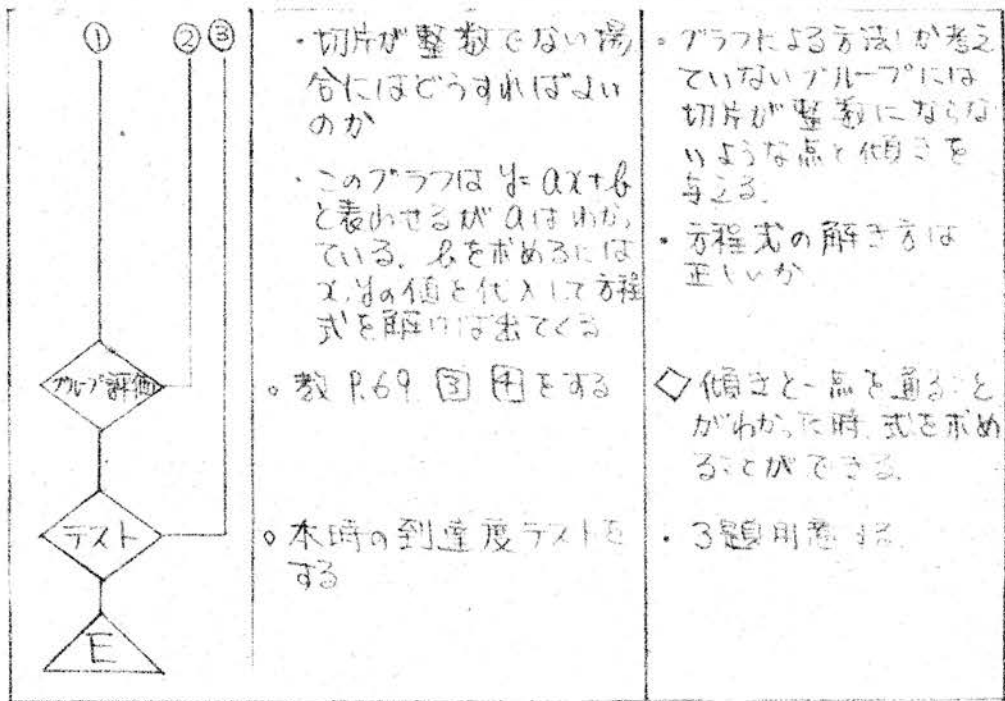 ① ② ③
・切片が整数でない場
合にはどうすればよい
のか
・このグラフは y=ax+b
と表わせるが aはわかっ
ている。bを求めるには
x,yの値を代入して方程
式を解けば出てくる
グループ評価
○教 P.69 3 4 をする
テスト
○本時の到達度テストを
する
E
・グラフによる方法しか考え
ていないグループには
切片が整数にならな
いような点と傾きを
与える。
・方程式の解き方は
正しいか
◇傾きと一点を通ること
がわかった時、式を求め
ることができる。
・3題用意する。